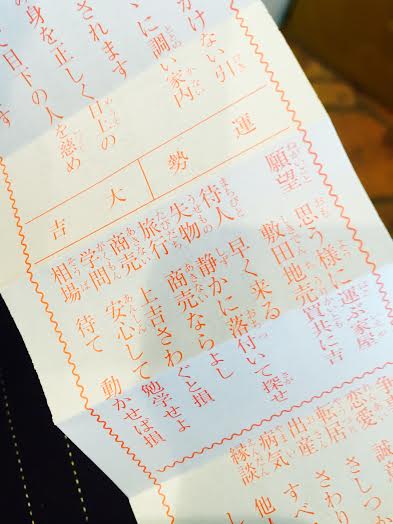 かけない引
に調い家内
されます
の身を正しく目上の
目下の人を慈め
運勢
大吉
願望 思う様に運ぶ家屋
敷田地売買共に吉
待人 早く来る
失物 静かに落付いて探せ
旅行 商売ならよし
商売 上吉さわぐと損
学問 安心して勉学せよ
相場 待て 動かせば損
争
恋愛 誠意
転居 さしつか
出産 さわり
病気 すべ
縁談 他